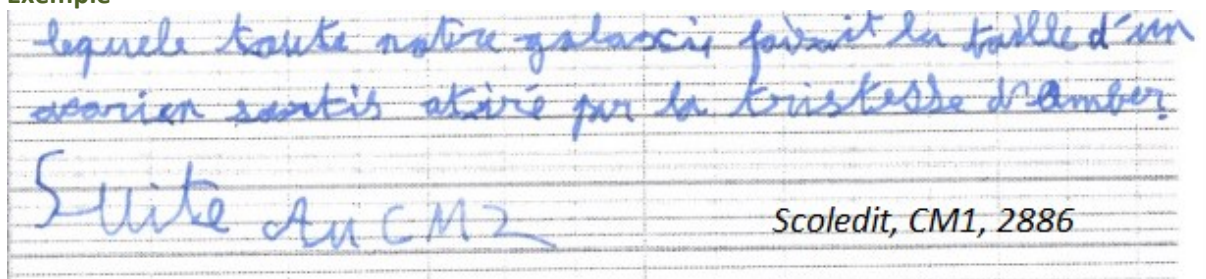 Exemple
lequele toute notre galaxcie faisait la taille d'un
acarien sortis atiré par la tristesse d'Amber.
Suite Au CM2
Scoledit, CM1, 2886